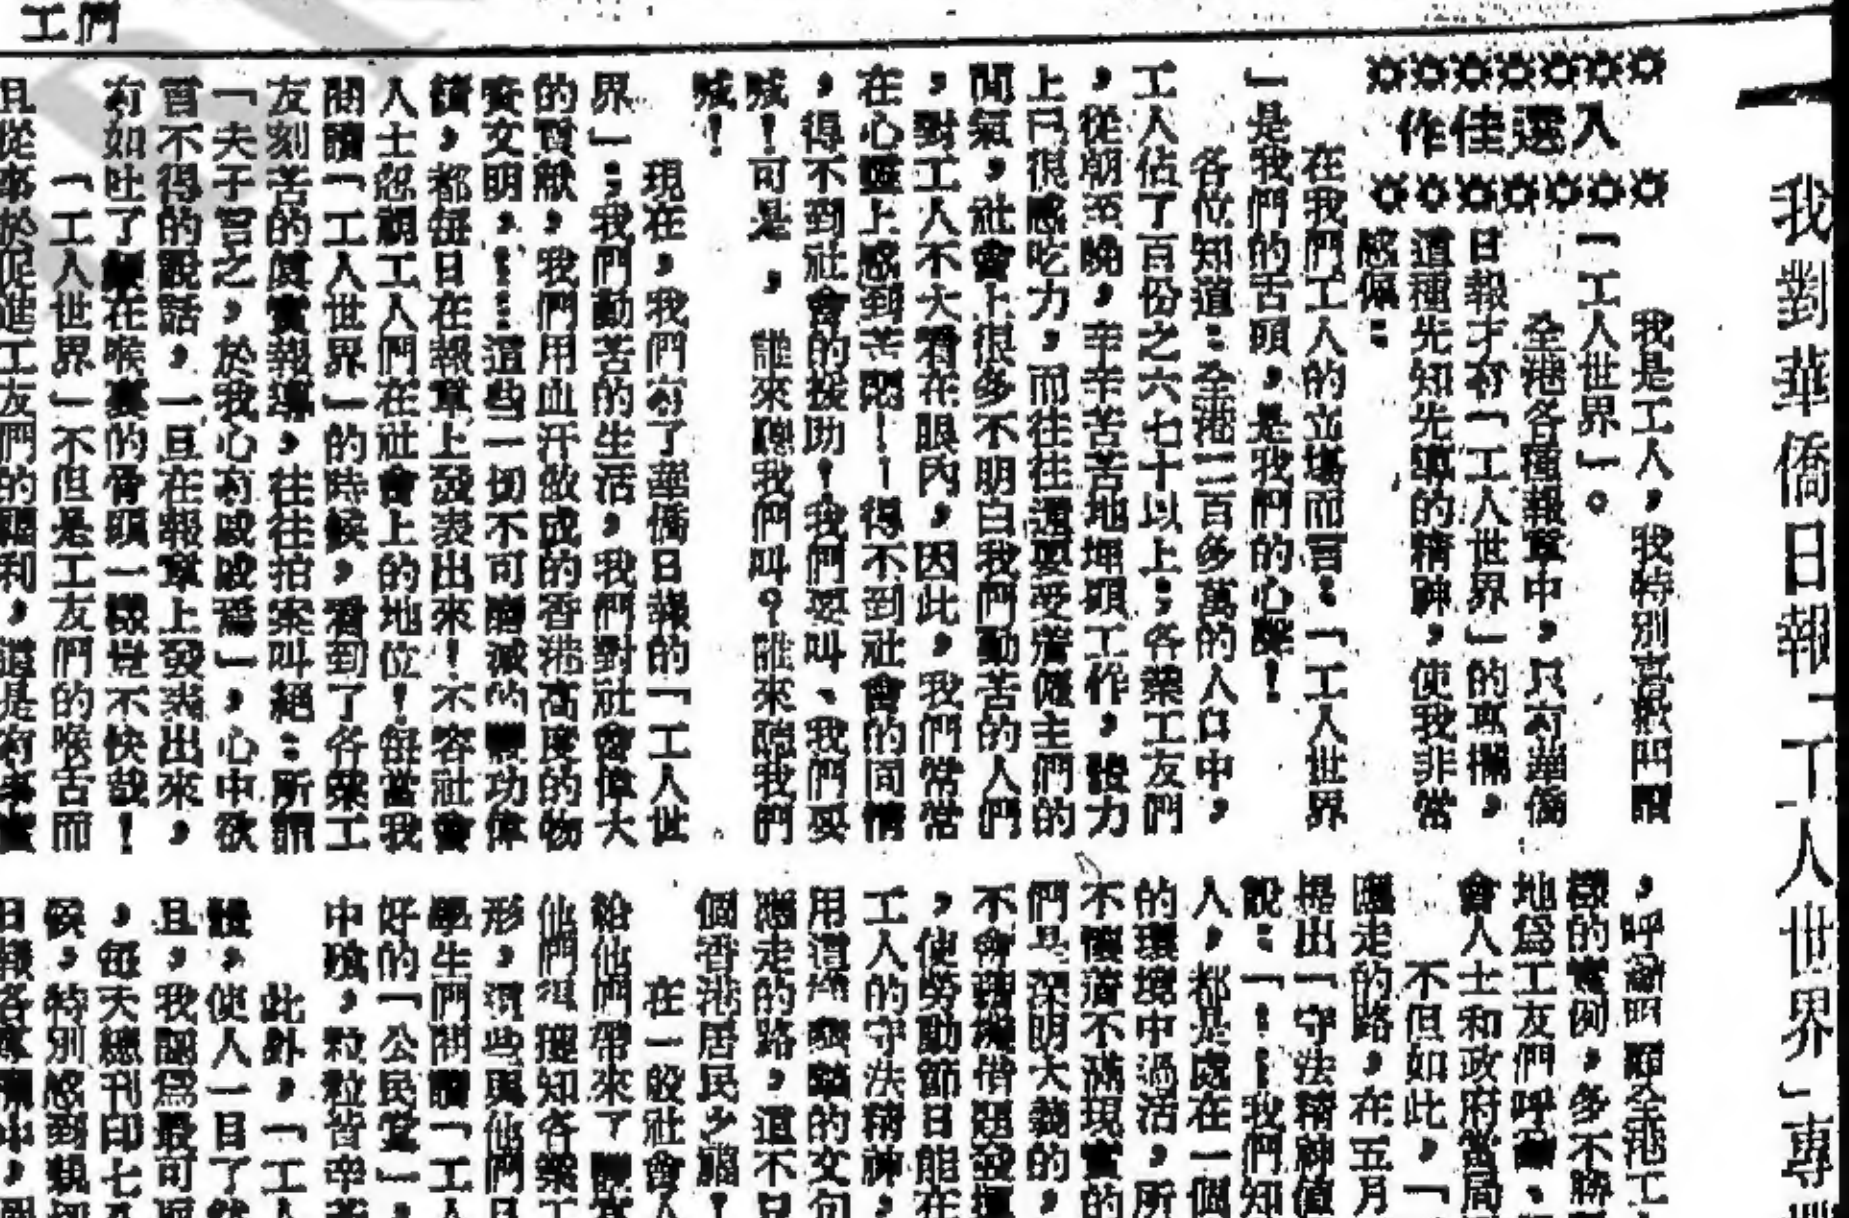 工們
我對華僑日報「工人世界」專
入選佳作
我是工人，我特別喜歡閱讀
「工人世界」。
全港各種報章中，只有華僑
日報才有「工人世界」的專欄，
這種先知先導的精神，使我非常
感佩：
在我們工人的立場而言：「工人世界
」是我們的舌頭，是我們的心聲！
各位知道：全港三百多萬的人口中，
工人佔了百份之六七十以上；各業工友們
，從朝至晚，辛辛苦苦地埋頭工作，體力
上已很感吃力，而往往還要受僱主們的
閒氣，社會上很多不明白我們勤苦的人們
，對工人不大看在眼內，因此，我們常常
在心靈上感到苦悶！！得不到社會的同情
，得不到社會的援助！我們要叫、我們要
喊！可是，誰來聽我們叫？誰來聽我們
喊！
現在，我們有了華僑日報的「工人世
界」；我們勤苦的生活，我們對社會偉大
的貢獻，我們用血汗做成的香港高度的物
文明，……這些一切不可磨滅的豐功偉
績，都每日在報章上發表出來！不容社會
人士忽視工人們在社會上的地位！每當我
閱讀「工人世界」的時候，看到了各業工
友刻苦的真實報導，往往拍案叫絕：所謂
「夫子言之，於我心有戚戚焉」，心中欲
言不得的說話，一旦在報章上發表出來，
有如吐了鯁在喉裏的骨頭一樣覺不快哉！
「工人世界」不但是工友們的喉舌而
且從事於促進工友們的福利，這是有事實
，呼籲 全港工
樣的 例，多不勝
地為工友們呼籲、
會人士和政府當局
不但如此，「
應走的路，在五月
提出「守法精神值
說：「……我們知
人，都是處在一個
的環境中過活，所
不僅 不滿現實的
們是深明大義的，
不會藉機借題發揮
，使勞動節日能在
工人的守法精神，
用這 的文句
應走的路，這不只
個香港居民 ！
在一般社會人
給他們帶來了
他們 知各業工
形，這些與他們日
學生們閱讀「工人
好的「公民 」，
中 ，粒粒皆辛苦
此外，「工人
，使人一目了然
且，我認為最可
，每天總刊印七八
候，特別感到親切
日報各 中，